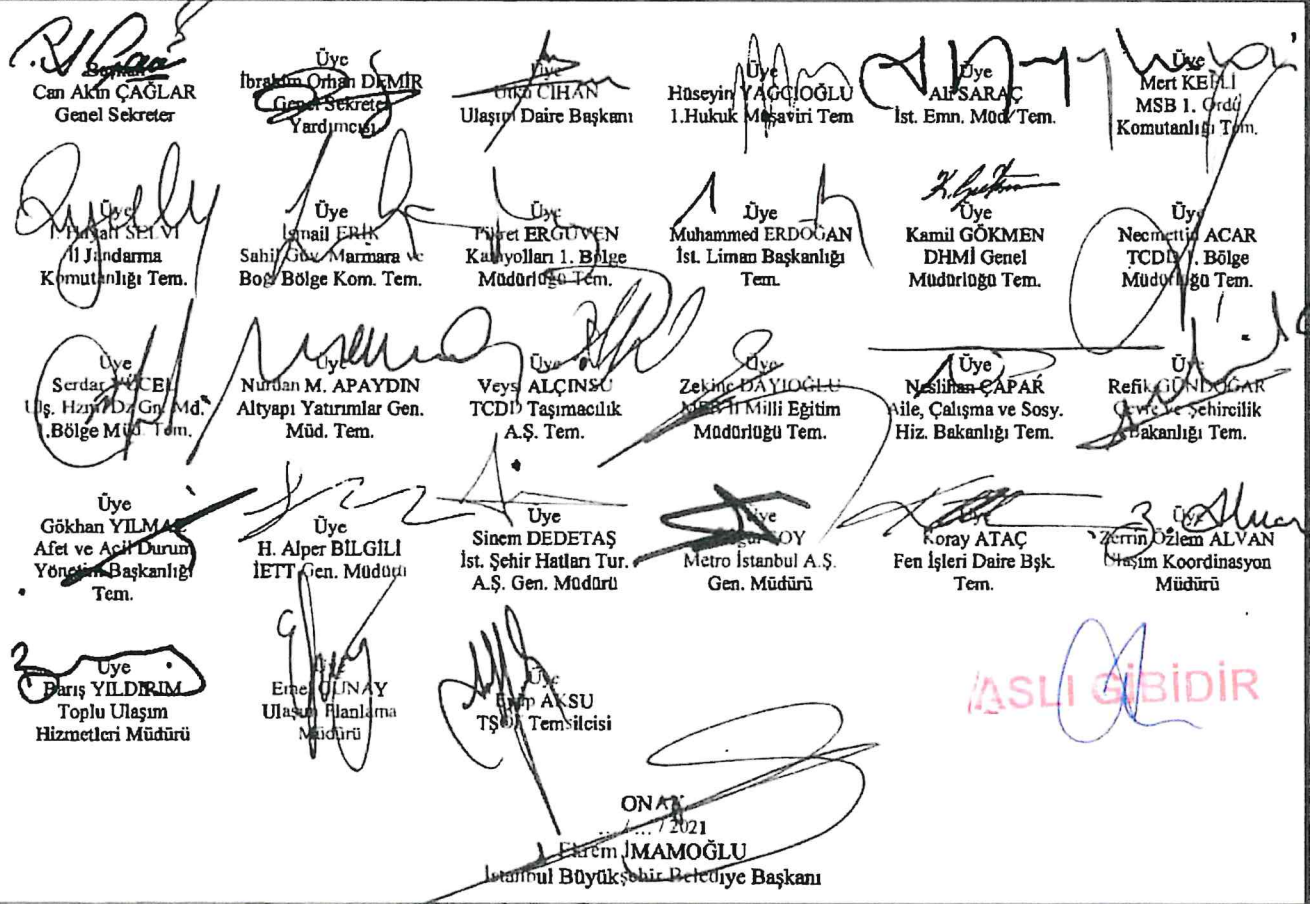 Başkan
Can Akın ÇAĞLAR
Genel Sekreter
Üye
İbrahim Orhan DEMİR
Genel Sekreter
Yardımcısı
Üye
Utku CİHAN
Ulaşım Daire Başkanı
Üye
Hüseyin YAĞCIOĞLU
1.Hukuk Müşaviri Tem
Üye
Ali SARAÇ
İst. Emn. Müd. Tem.
Üye
Mert
MSB 1. Ordu
Komutanlığı Tem.
Üye
SELVİ
İl Jandarma
Komutanlığı Tem.
Üye
İsmail ERİK
Sahil Güv. Marmara ve
Boğ. Bölge Kom. Tem.
Üye
Fikret ERGÜVEN
Karayolları 1. Bölge
Müdürlüğü Tem.
Üye
Muhammed ERDOĞAN
İst. Liman Başkanlığı
Tem.
Üye
Kamil GÖKMEN
DHMİ Genel
Müdürlüğü Tem.
Üye
Necmettin ACAR
TCDD 1. Bölge
Müdürlüğü Tem.
Üye
Serdar YÜCEL
Ulş. Hzm. Dz Gn. Md.
1.Bölge Müd. Tem.
Üye
Nurdan M. APAYDIN
Altyapı Yatırımlar Gen.
Müd. Tem.
Üye
Veysi ALÇINSU
TCDD Taşımacılık
A.Ş. Tem.
Üye
Zekine DAYIOĞLU
MEB İl Milli Eğitim
Müdürlüğü Tem.
Üye
Neslihan ÇAPAR
Aile, Çalışma ve Sosy.
Hiz. Bakanlığı Tem.
Üye
Refik GÜNDOĞAR
Çevre ve Şehircilik
Bakanlığı Tem.
Üye
Gökhan YILMAZ
Afet ve Acil Durum
Yönetim Başkanlığı
Tem.
Üye
H. Alper BİLGİLİ
İETT Gen. Müdürü
Üye
Sinem DEDETAŞ
İst. Şehir Hatları Tur.
A.Ş. Gen. Müdürü
Üye
SOY
Metro İstanbul A.Ş.
Gen. Müdürü
Üye
Koray ATAÇ
Fen İşleri Daire Bşk.
Tem.
Üye
Zerrin Özlem ALVAN
Ulaşım Koordinasyon
Müdürü
Üye
Barış YILDIRIM
Toplu Ulaşım
Hizmetleri Müdürü
Üye
Emel GÜNAY
Ulaşım Planlama
Müdürü
Üye
Eyüp AKSU
TŞOF Temsilcisi
ASLI GİBİDİR
ONAY
... / ... / 2021
Ekrem İMAMOĞLU
İstanbul Büyükşehir Belediye Başkanı